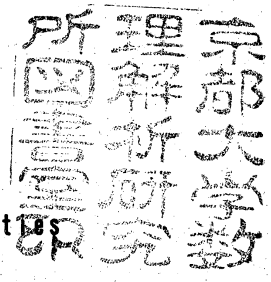 京都大学数
理解析研究
所図書室印
ties